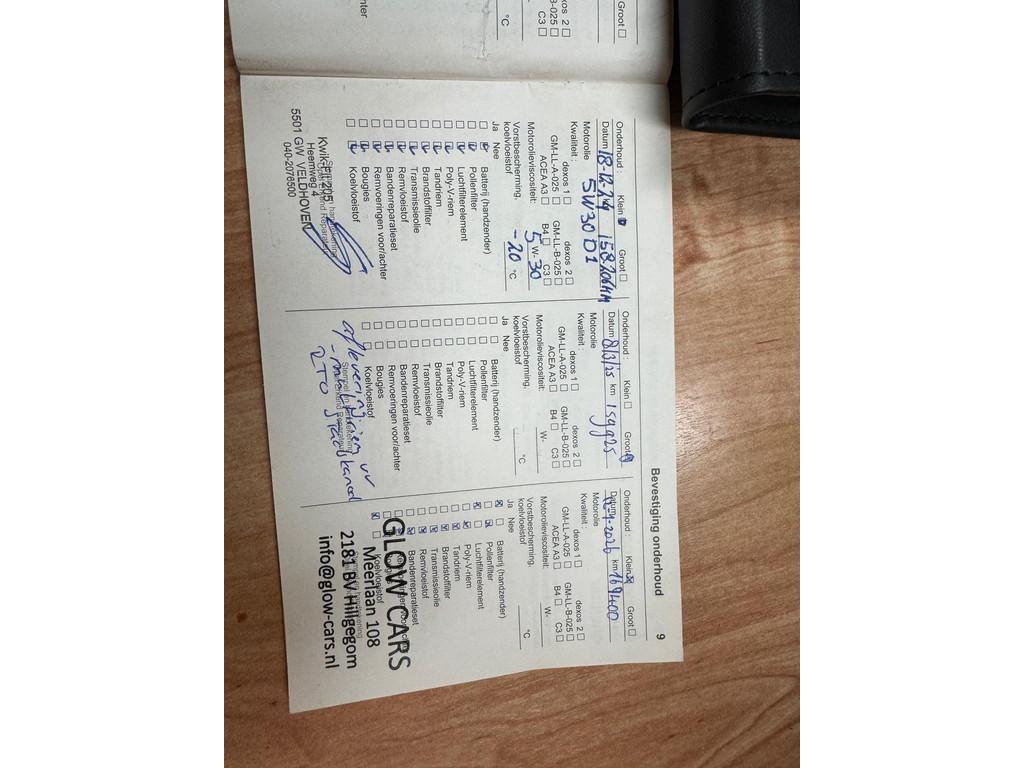 Groot □
s 2 □
B-025 □
C3 □
°C
nter
Bevestiging onderhoud
9
Onderhoud :
Klein
Groot □
Datum 18-12-24
158.206 KM
Motorolie
5W30 D1
Kwaliteit :
dexos 1 □
dexos 2 □
GM-LL-A-025 □
GM-LL-B-025 □
ACEA A3 □
B4 □
C3 □
Motorolieviscositeit:
5 W- 30
Vorstbescherming,
koelvloeistof
-20 °C
Ja Nee
Batterij (handzender)
Pollenfilter
Luchtfilterelement
Poly-V-riem
Tandriem
Brandstoffilter
Transmissieolie
Remvloeistof
Bandenreparatieset
Remvoeringen voor/achter
Bougies
Koelvloeistof
Kwik-Fit 205
Heemweg 4
5501 GW VELDHOVEN
040-2076500
Onderhoud :
Klein □
Groot
Datum 8/3/25
km 159925
Motorolie
Kwaliteit :
dexos 1 □
dexos 2 □
GM-LL-A-025 □
GM-LL-B-025 □
ACEA A3 □
B4 □
C3 □
Motorolieviscositeit:
W-
Vorstbescherming,
koelvloeistof
°C
Ja Nee
Batterij (handzender)
Pollenfilter
Luchtfilterelement
Poly-V-riem
Tandriem
Brandstoffilter
Transmissieolie
Remvloeistof
Bandenreparatieset
Remvoeringen voor/achter
Bougies
Koelvloeistof
Stempel en handtekening
aflevering
RTO Stadskanaal
Onderhoud :
Klein
Groot □
Datum
-4-2026
km 169400
Motorolie
Kwaliteit :
dexos 1 □
dexos 2 □
GM-LL-A-025 □
GM-LL-B-025 □
ACEA A3 □
B4 □
C3 □
Motorolieviscositeit:
W-
Vorstbescherming,
koelvloeistof
°C
Ja Nee
Batterij (handzender)
Pollenfilter
Luchtfilterelement
Poly-V-riem
Tandriem
Brandstoffilter
Transmissieolie
Remvloeistof
Bandenreparatieset
Koelvloeistof
GLOW CARS
Meerlaan 108
2181 BV Hillgegom
info@glow-cars.nl